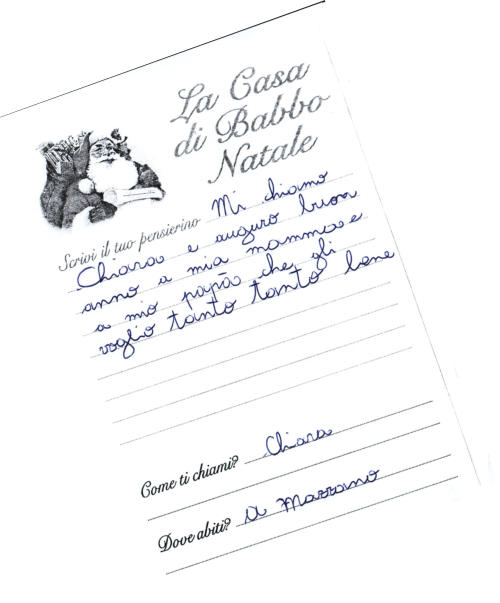 La Casa
di Babbo
Natale
Scrivi il tuo pensierino Mi chiamo
Chiara e auguro buon
anno a mia mamma e
a mio papà che gli
voglio tanto tanto bene
Come ti chiami? Chiara
Dove abiti? A Mazzano